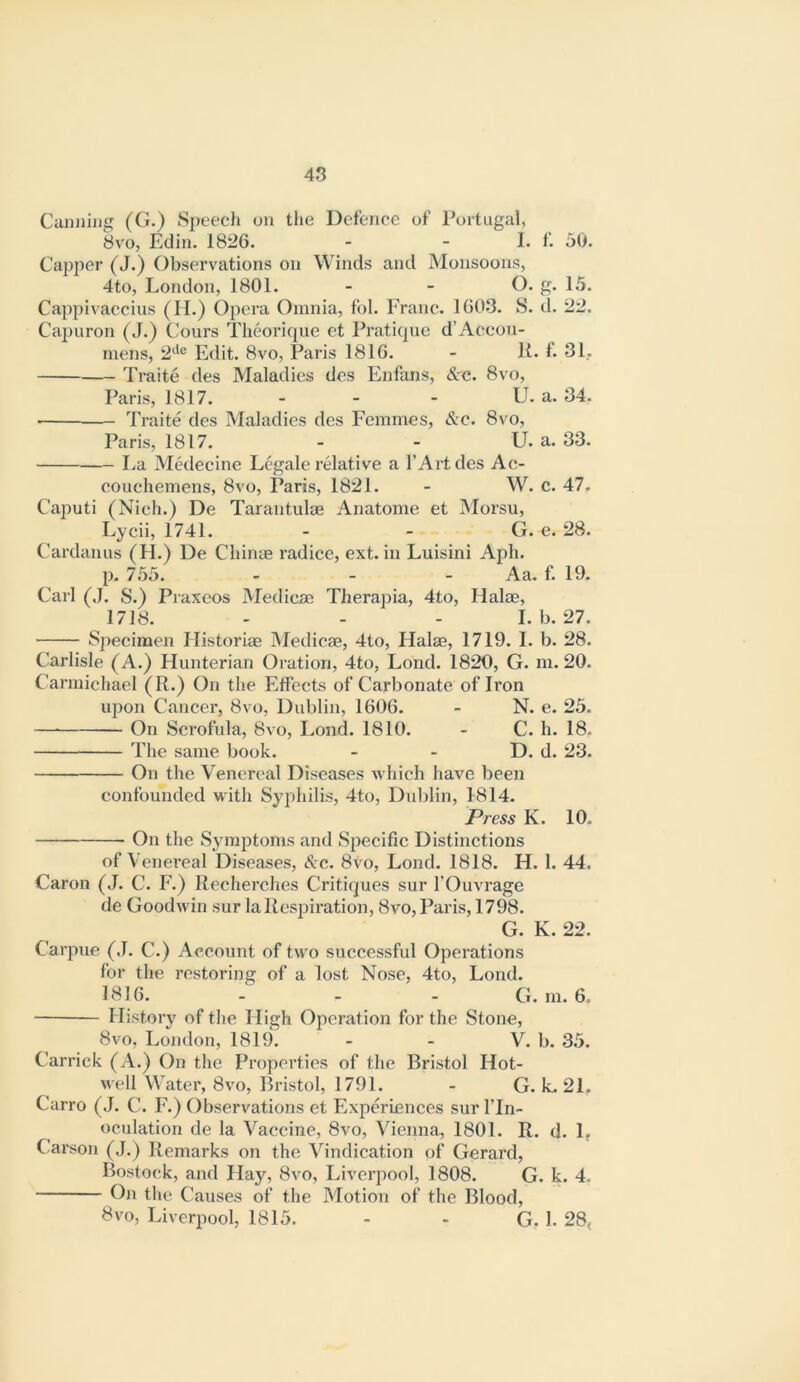 43
Canning (G.) Speech on the Defence of Portugal,
8vo, Edin. 1826. - - I. f. 50.
Capper (J.) Observations on Winds and Monsoons,
4to, London, 1801. - - O. g. 15.
Cappivaccius (H.) Opera Omnia, fol. Franc. 1603. S. d. 22.
Capuron (J.) Cours Théorique et Pratique d'Accou-
mens, 2de Edit. 8vo, Paris 1816. - R. f. 31.
——— Traité des Maladies des Enfans, &c. 8vo,
Paris, 1817. - - - U. a. 34.
——— Traité des Maladies des Femmes, &c. 8vo,
Paris, 1817. - - U. a. 33.
——— La Médecine Légale rélative a l'Art des Ac-
couchemens, 8vo, Paris, 1821. - W. c. 47.
Caputi (Nich.) De Tarantulæ Anatome et Morsu,
Lycii, 1741. - - G. e. 28.
Cardanus (H.) De Chinæ radice, ext. in Luisini Aph.
p. 755. - - - Aa. f. 19.
Carl (J. S.) Praxeos Medicæ Therapia, 4to, Halæ,
1718. - - - I. b. 27.
—— Specimen Historiæ Medicæ, 4to, Halæ, 1719. I. b. 28.
Carlisle (A.) Hunterian Oration, 4to, Lond. 1820, G. m. 20.
Carmichael (R.) On the Effects of Carbonate of Iron
upon Cancer, 8vo, Dublin, 1606. - N. e. 25.
——— On Scrofula, 8vo, Lond. 1810. - C. h. 18.
——— The same book. - - D. d. 23.
——— On the Venereal Diseases which have been
confounded with Syphilis, 4to, Dublin, 1814.
Press K. 10.
——— On the Symptoms and Specific Distinctions
of Venereal Diseases, &c. 8vo, Lond. 1818. H. l. 44.
Caron (J. C. F.) Recherches Critiques sur l'Ouvrage
de Goodwin sur la Respiration, 8vo, Paris, 1798.
G. K. 22.
Carpue (J. C.) Account of two successful Operations
for the restoring of a lost Nose, 4to, Lond.
1816. - - - G. m. 6.
——— History of the High Operation for the Stone,
8vo, London, 1819. - - V. b. 35.
Carrick (A.) On the Properties of the Bristol Hot-
well Water, 8vo, Bristol, 1791. - G. k. 21.
Carro (J. C. F.) Observations et Expériences sur l'In-
oculation de la Vaccine, 8vo, Vienna, 1801. R. d. 1.
Carson (J.) Remarks on the Vindication of Gerard,
Bostock, and Hay, 8vo, Liverpool, 1808. G. k. 4.
——— On the Causes of the Motion of the Blood,
8vo, Liverpool, 1815. - - G. l. 28.